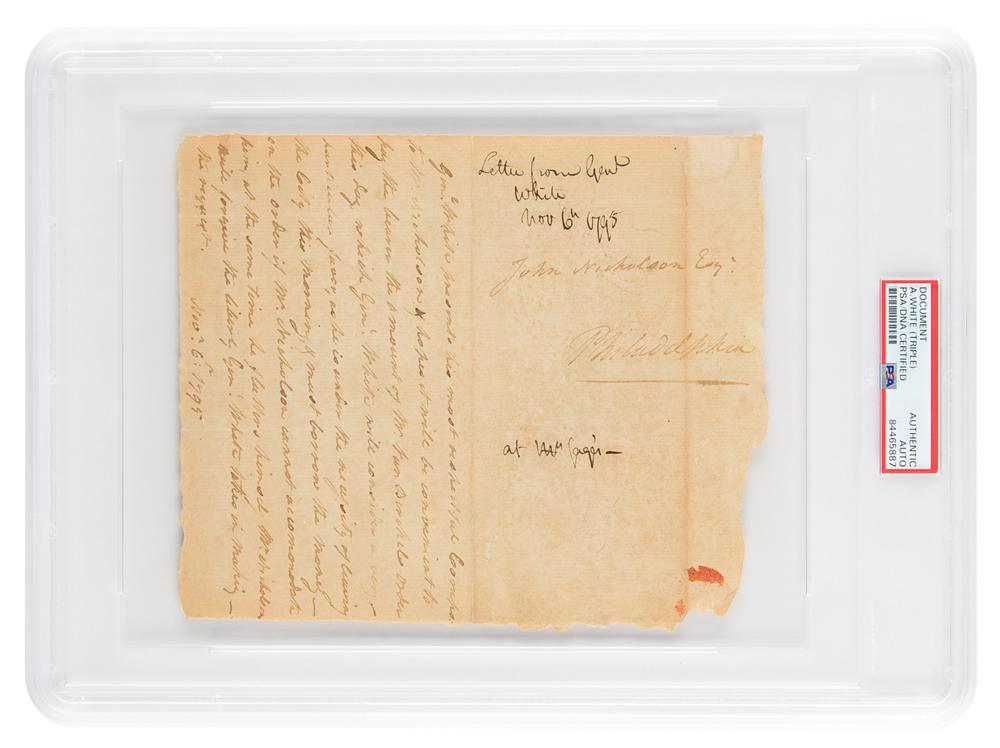 Letter from Genl
White
Nov 6th 1795
John Nicholson Esqr.
Philadelphia
at Mrs
Genl. White presents his most respectful Comps.
to Mr. Nicholson & hopes it will be convenient to
pay the bearer the amount of Mr. Van Order
this day which Genl. White will consider a very
particular favor, as he is under the necessity of leaving
the City this morning, & must borrow the money
on the order if Mr. Nicholson cannot accomodate
him, at the same time he flatters himself Mr. Nicholson
will forgive the liberty Genl. White takes in making
the request.
Novr. 6: 1795
DOCUMENT
A.WHITE (TRIPLE)
PSA/DNA CERTIFIED
AUTHENTIC
AUTO
84465887
PSA